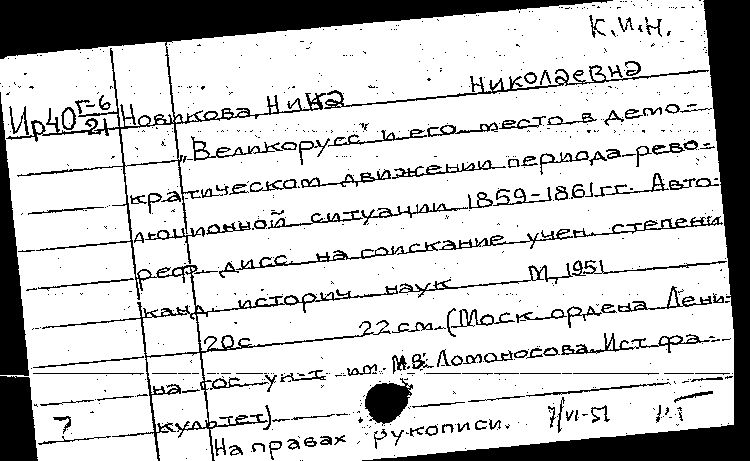 К.И.Н.
Ир40 Г-6/21 Новикова, Ника Николаевна
„Великорусс" и его место в демо-
кратическом движении периода рево-
люционной ситуации 1859-1861 гг. Авто-
реф. дисс. на соискание учен. степени
канд. историч. наук М, 1951
20с. 22 см. (Моск. ордена Лени-
на гос. ун-т им. М.В. Ломоносова. Ист. фа-
культет)
На правах рукописи. 7/VI-51
7